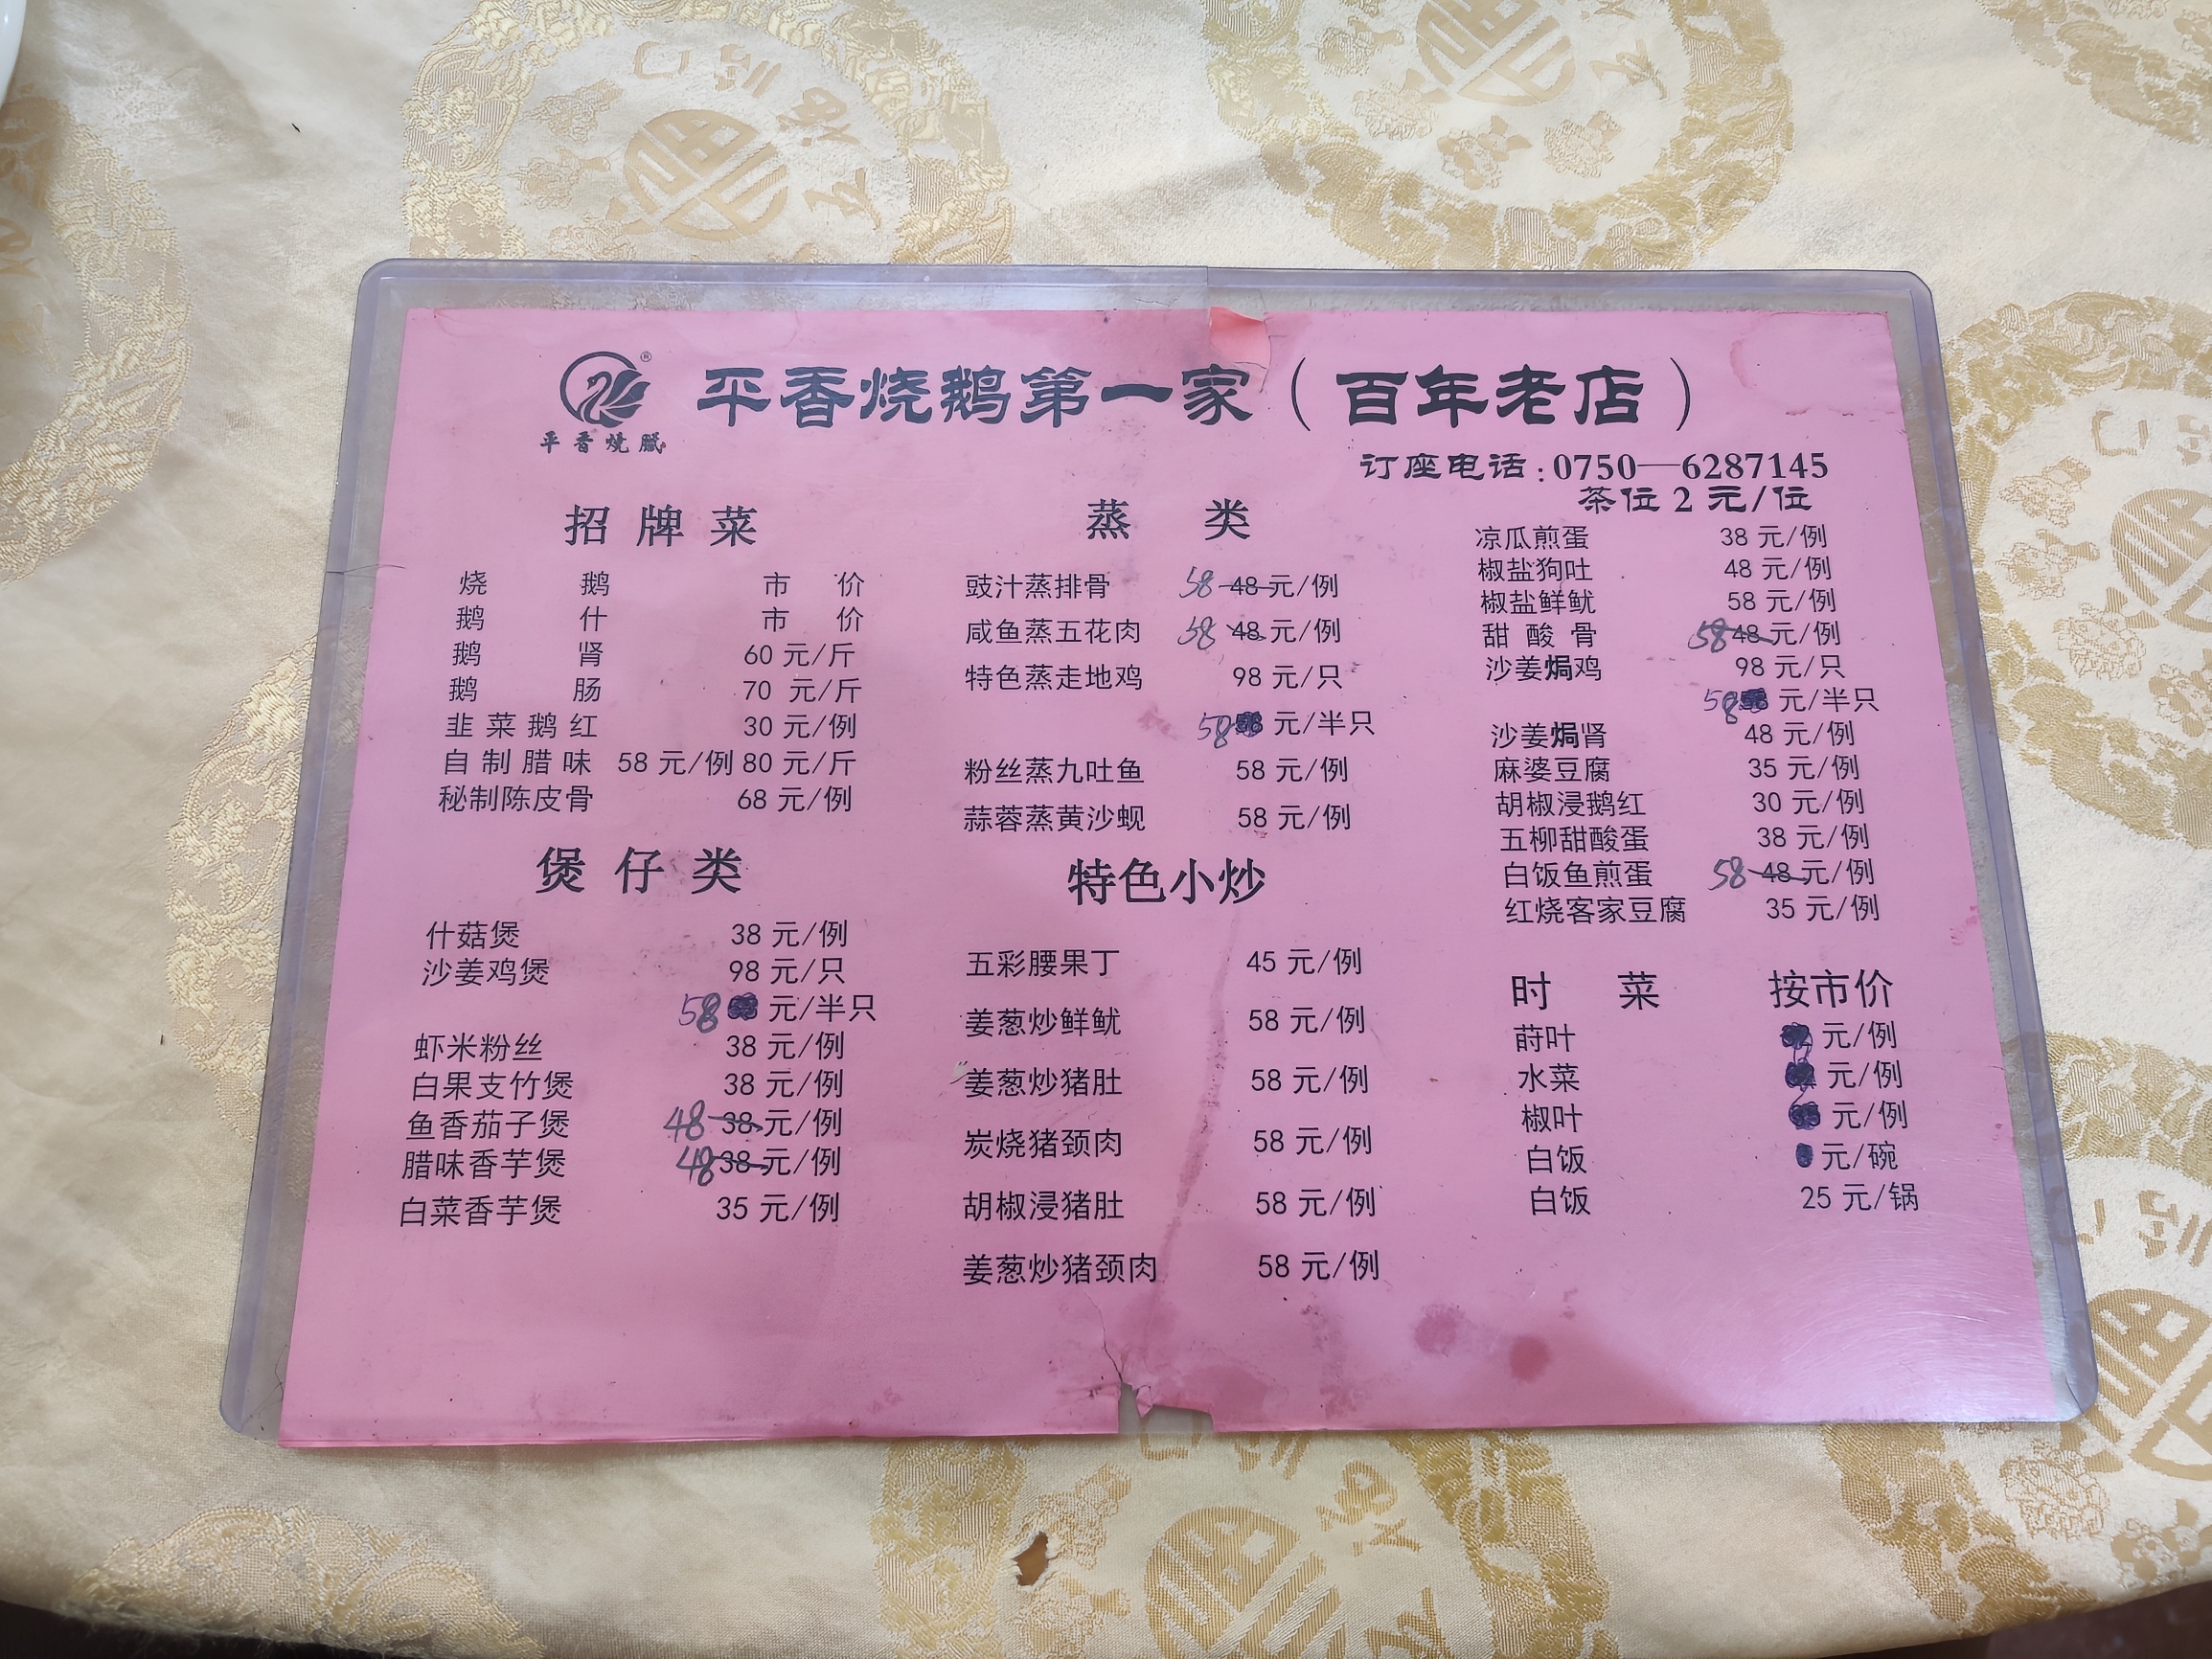 平香烧鹅第一家（百年老店）
®
平香烧腻
订座电话:0750—6287145
茶位 2 元/位
招牌菜
烧鹅 市价
鹅什 市价
鹅肾 60 元/斤
鹅肠 70 元/斤
韭菜鹅红 30 元/例
自制腊味 58 元/例 80 元/斤
秘制陈皮骨 68 元/例
煲仔类
什菇煲 38 元/例
沙姜鸡煲 98 元/只
58 元/半只
虾米粉丝 38 元/例
白果支竹煲 38 元/例
鱼香茄子煲 48 38 元/例
腊味香芋煲 48 38 元/例
白菜香芋煲 35 元/例
蒸类
豉汁蒸排骨 58 48 元/例
咸鱼蒸五花肉 58 48 元/例
特色蒸走地鸡 98 元/只
58 元/半只
粉丝蒸九吐鱼 58 元/例
蒜蓉蒸黄沙蚬 58 元/例
特色小炒
五彩腰果丁 45 元/例
姜葱炒鲜鱿 58 元/例
姜葱炒猪肚 58 元/例
炭烧猪颈肉 58 元/例
胡椒浸猪肚 58 元/例
姜葱炒猪颈肉 58 元/例
凉瓜煎蛋 38 元/例
椒盐狗吐 48 元/例
椒盐鲜鱿 58 元/例
甜酸骨 58 48 元/例
沙姜焗鸡 98 元/只
58 元/半只
沙姜焗肾 48 元/例
麻婆豆腐 35 元/例
胡椒浸鹅红 30 元/例
五柳甜酸蛋 38 元/例
白饭鱼煎蛋 58 48 元/例
红烧客家豆腐 35 元/例
时菜 按市价
莳叶 元/例
水菜 元/例
椒叶 元/例
白饭 元/碗
白饭 25 元/锅